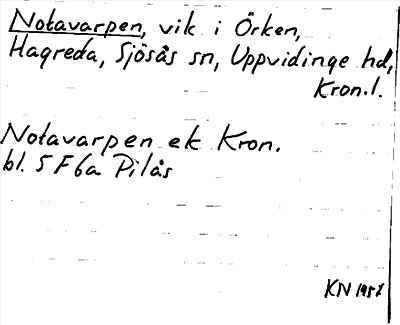 Notavarpen, vik i Örken,
Hagreda, Sjösås sn, Uppvidinge hd,
Kron.l.
Notavarpen ek Kron.
bl. 5 F 6a Pilås
KN 1957